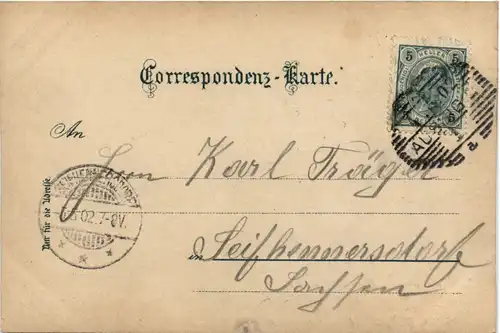 Correspondenz-Karte.
5 HELLER 5
An
Herrn Karl Träger
in Seifhennersdorf
Sachsen
Nur für die Adresse.
SEIFHENNERSDORF
02. 7-8V.